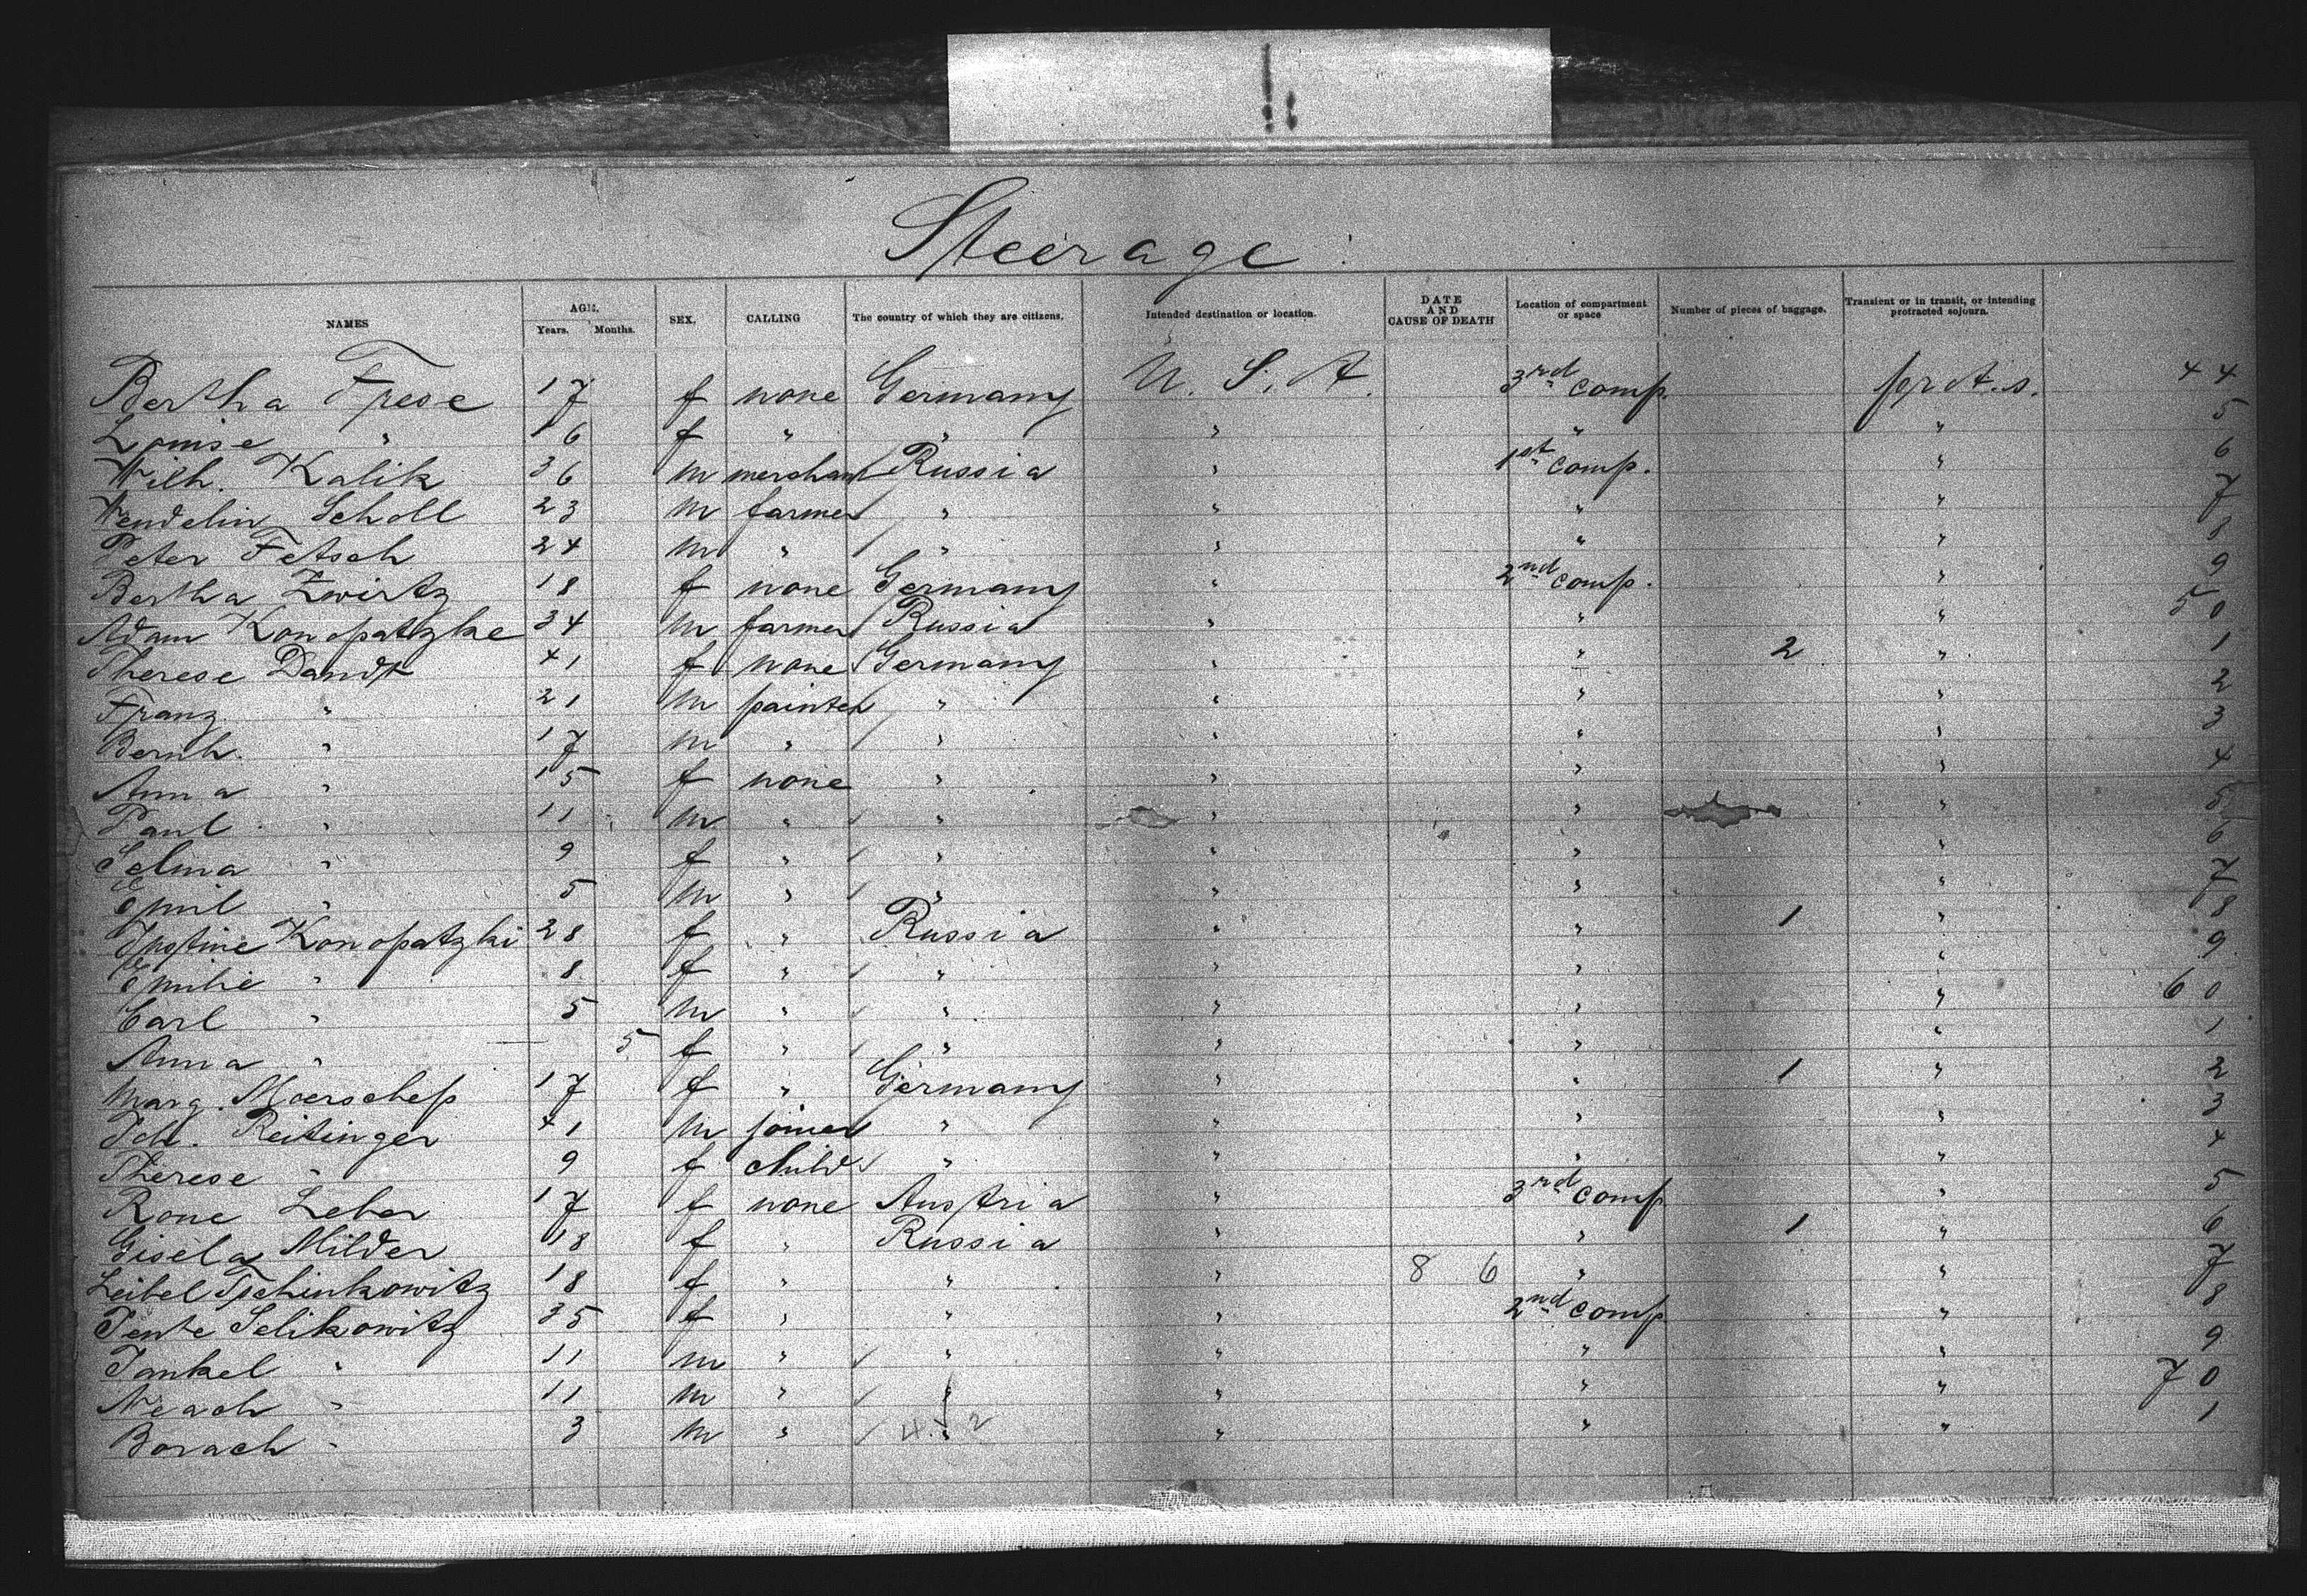 Steerage.
NAMES AGE. Years. Months. SEX. CALLING The country of which they are citizens. Intended destination or location. DATE AND CAUSE OF DEATH Location of compartment or space Number of pieces of baggage. Transient or in transit, or intending protracted sojourn.
Bertha Frese 17 f none Germany U. S. A. 3rd comp. prot. s. 44
Louise " 16 f " " " " " 5
Wilh. Kalik 36 m merchant Russia " 1st comp. " 6
Wendelin Scholl 23 m farmer " " " " 7
Peter Fetsch 24 m " " " " " 8
Bertha Zwirtz 18 f none Germany " 2nd comp. " 9
Adam Konopatzke 34 m farmer Russia " " " 50
Therese Dandt 41 f none Germany " " 2 " 1
Franz " 21 m painter " " " " 2
Bernh. " 17 m " " " " " 3
Anna " 15 f none " " " " 4
Paul " 11 m " " " " " 5
Selma " 9 f " " " " " 6
Emil " 5 m " " " " " 7
Justine Konopatzki 28 f " Russia " " 1 " 8
Emilie " 8 f " " " " " 9
Carl " 5 m " " " " " 60
Anna " 5 f " " " " " 1
Marg. 17 f " Germany " " 1 " 2
Reitinger 41 m joiner " " " " 3
Therese " 9 f child " " " " 4
Rone Leber 17 f none Austria " 3rd comp " 5
Gisela Milder 18 f " Russia " " 1 " 6
Leibel Tschinkowitz 18 f " " " 8 6 " " 7
Tente Selikowitz 35 f " " " 2nd comp " 8
Jankel " 11 m " " " " " 9
Neach " 11 m " " " " " 70
Borach " 3 m " " " " " 1